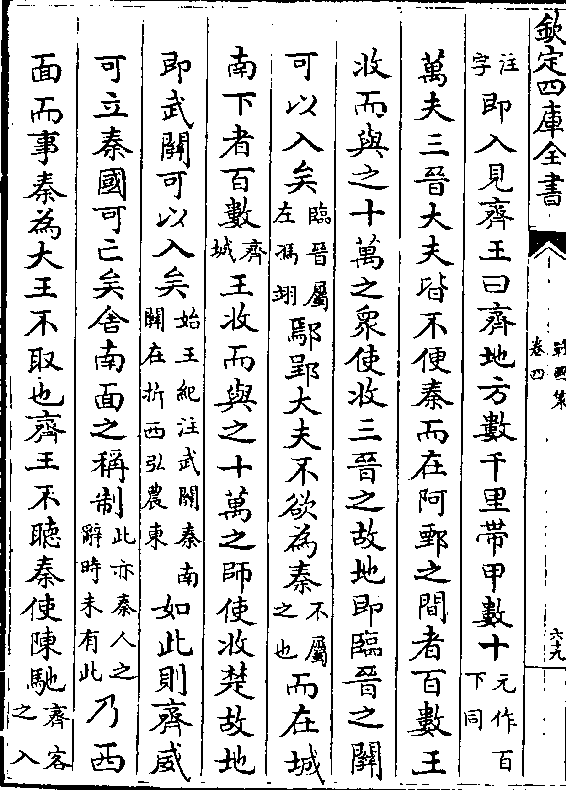 欽定四庫全書
戰國策
卷四
六十九
注字即入見齊王曰齊地方數千里帶甲數十元作百下同
萬夫三晉大夫皆不便秦而在阿鄄之間者百數王
收而與之十萬之衆使收三晉之故地即臨晉之關
可以入矣臨晉屬左馮翊鄢郢大夫不欲為秦不屬之也而在城
南下者百數齊城王收而與之十萬之師使收楚故地
即武關可以入矣始王紀注武關秦南關在析西弘農東如此則齊威
可立秦國可亡矣舍南面之稱制此亦秦人之辭時未有此乃西
面而事秦為大王不取也齊王不聽秦使陳馳齊客之入